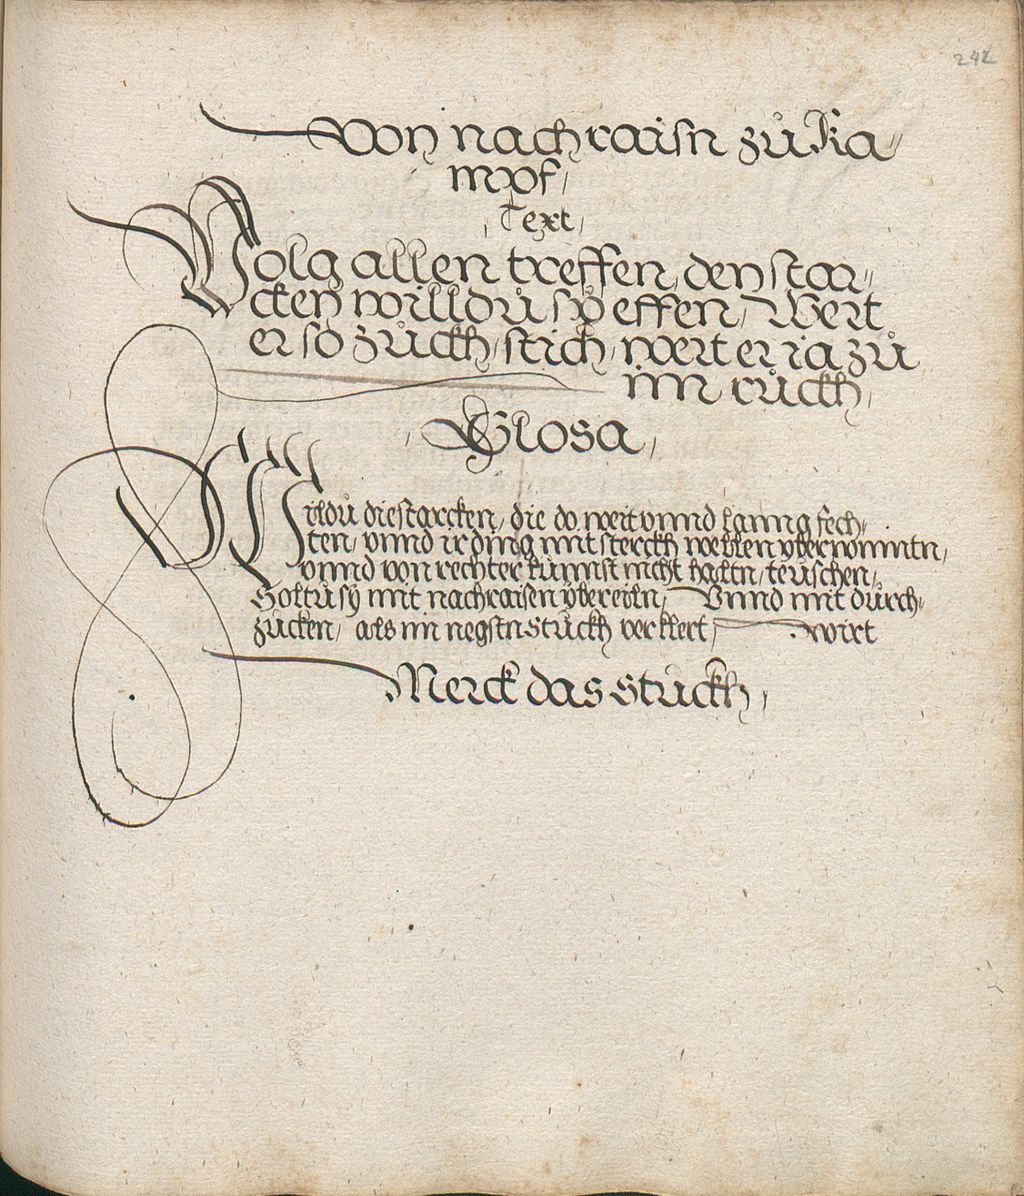 242
Von nachraisn zů Ka=
mpf/
Text/
Volg allen treffen, den star=
cken willdů sÿ effen, Wert
er so zůckh, stich, wert er ia zů
im růckh,
Glosa,
Wildů die starcken, die do weit vnnd lanng fech=
ten, vnnd ir ding mit sterckh wellen yberwinntn,
vnnd von rechter kunnst nicht haltn, teuschen,
Soltu sÿ mit nachraisen ÿbereiln, Vnnd mit durch=
zucken, als im negstn stuckh verklert, wirt
Merck das stuckh,